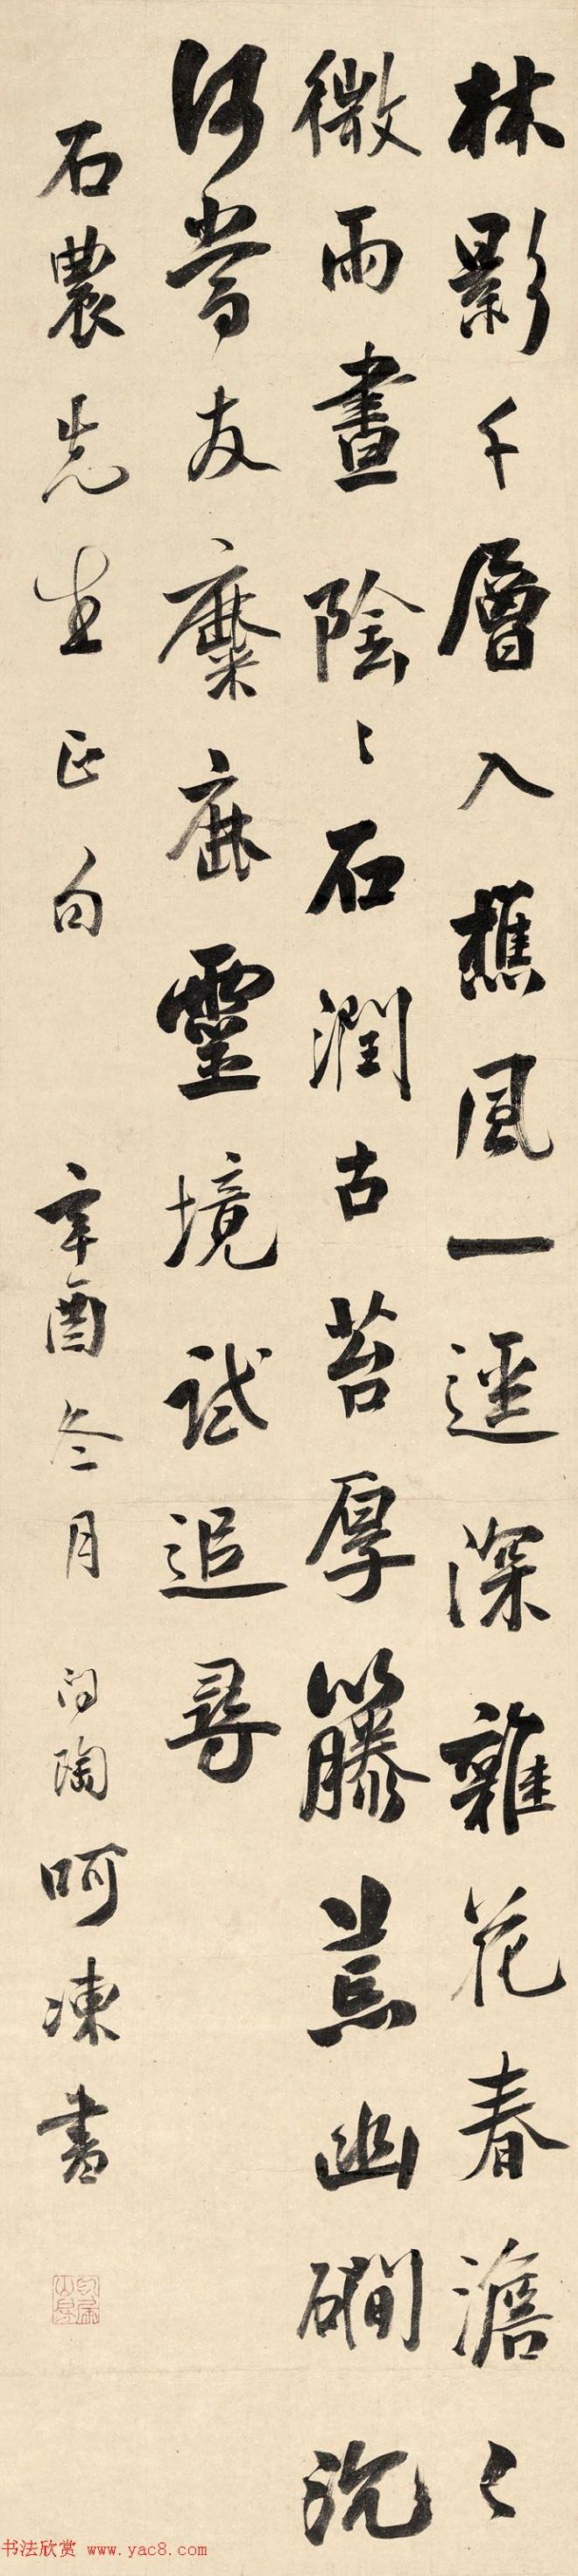 林影千層入樵風一逕深雜花春澹〻
微雨晝陰〻石潤古苔厚籐荒幽磵沉
何當友麋鹿靈境試追尋
石農先生正句
辛酉冬月 問陶呵凍書
书法欣赏 www.yac8.com